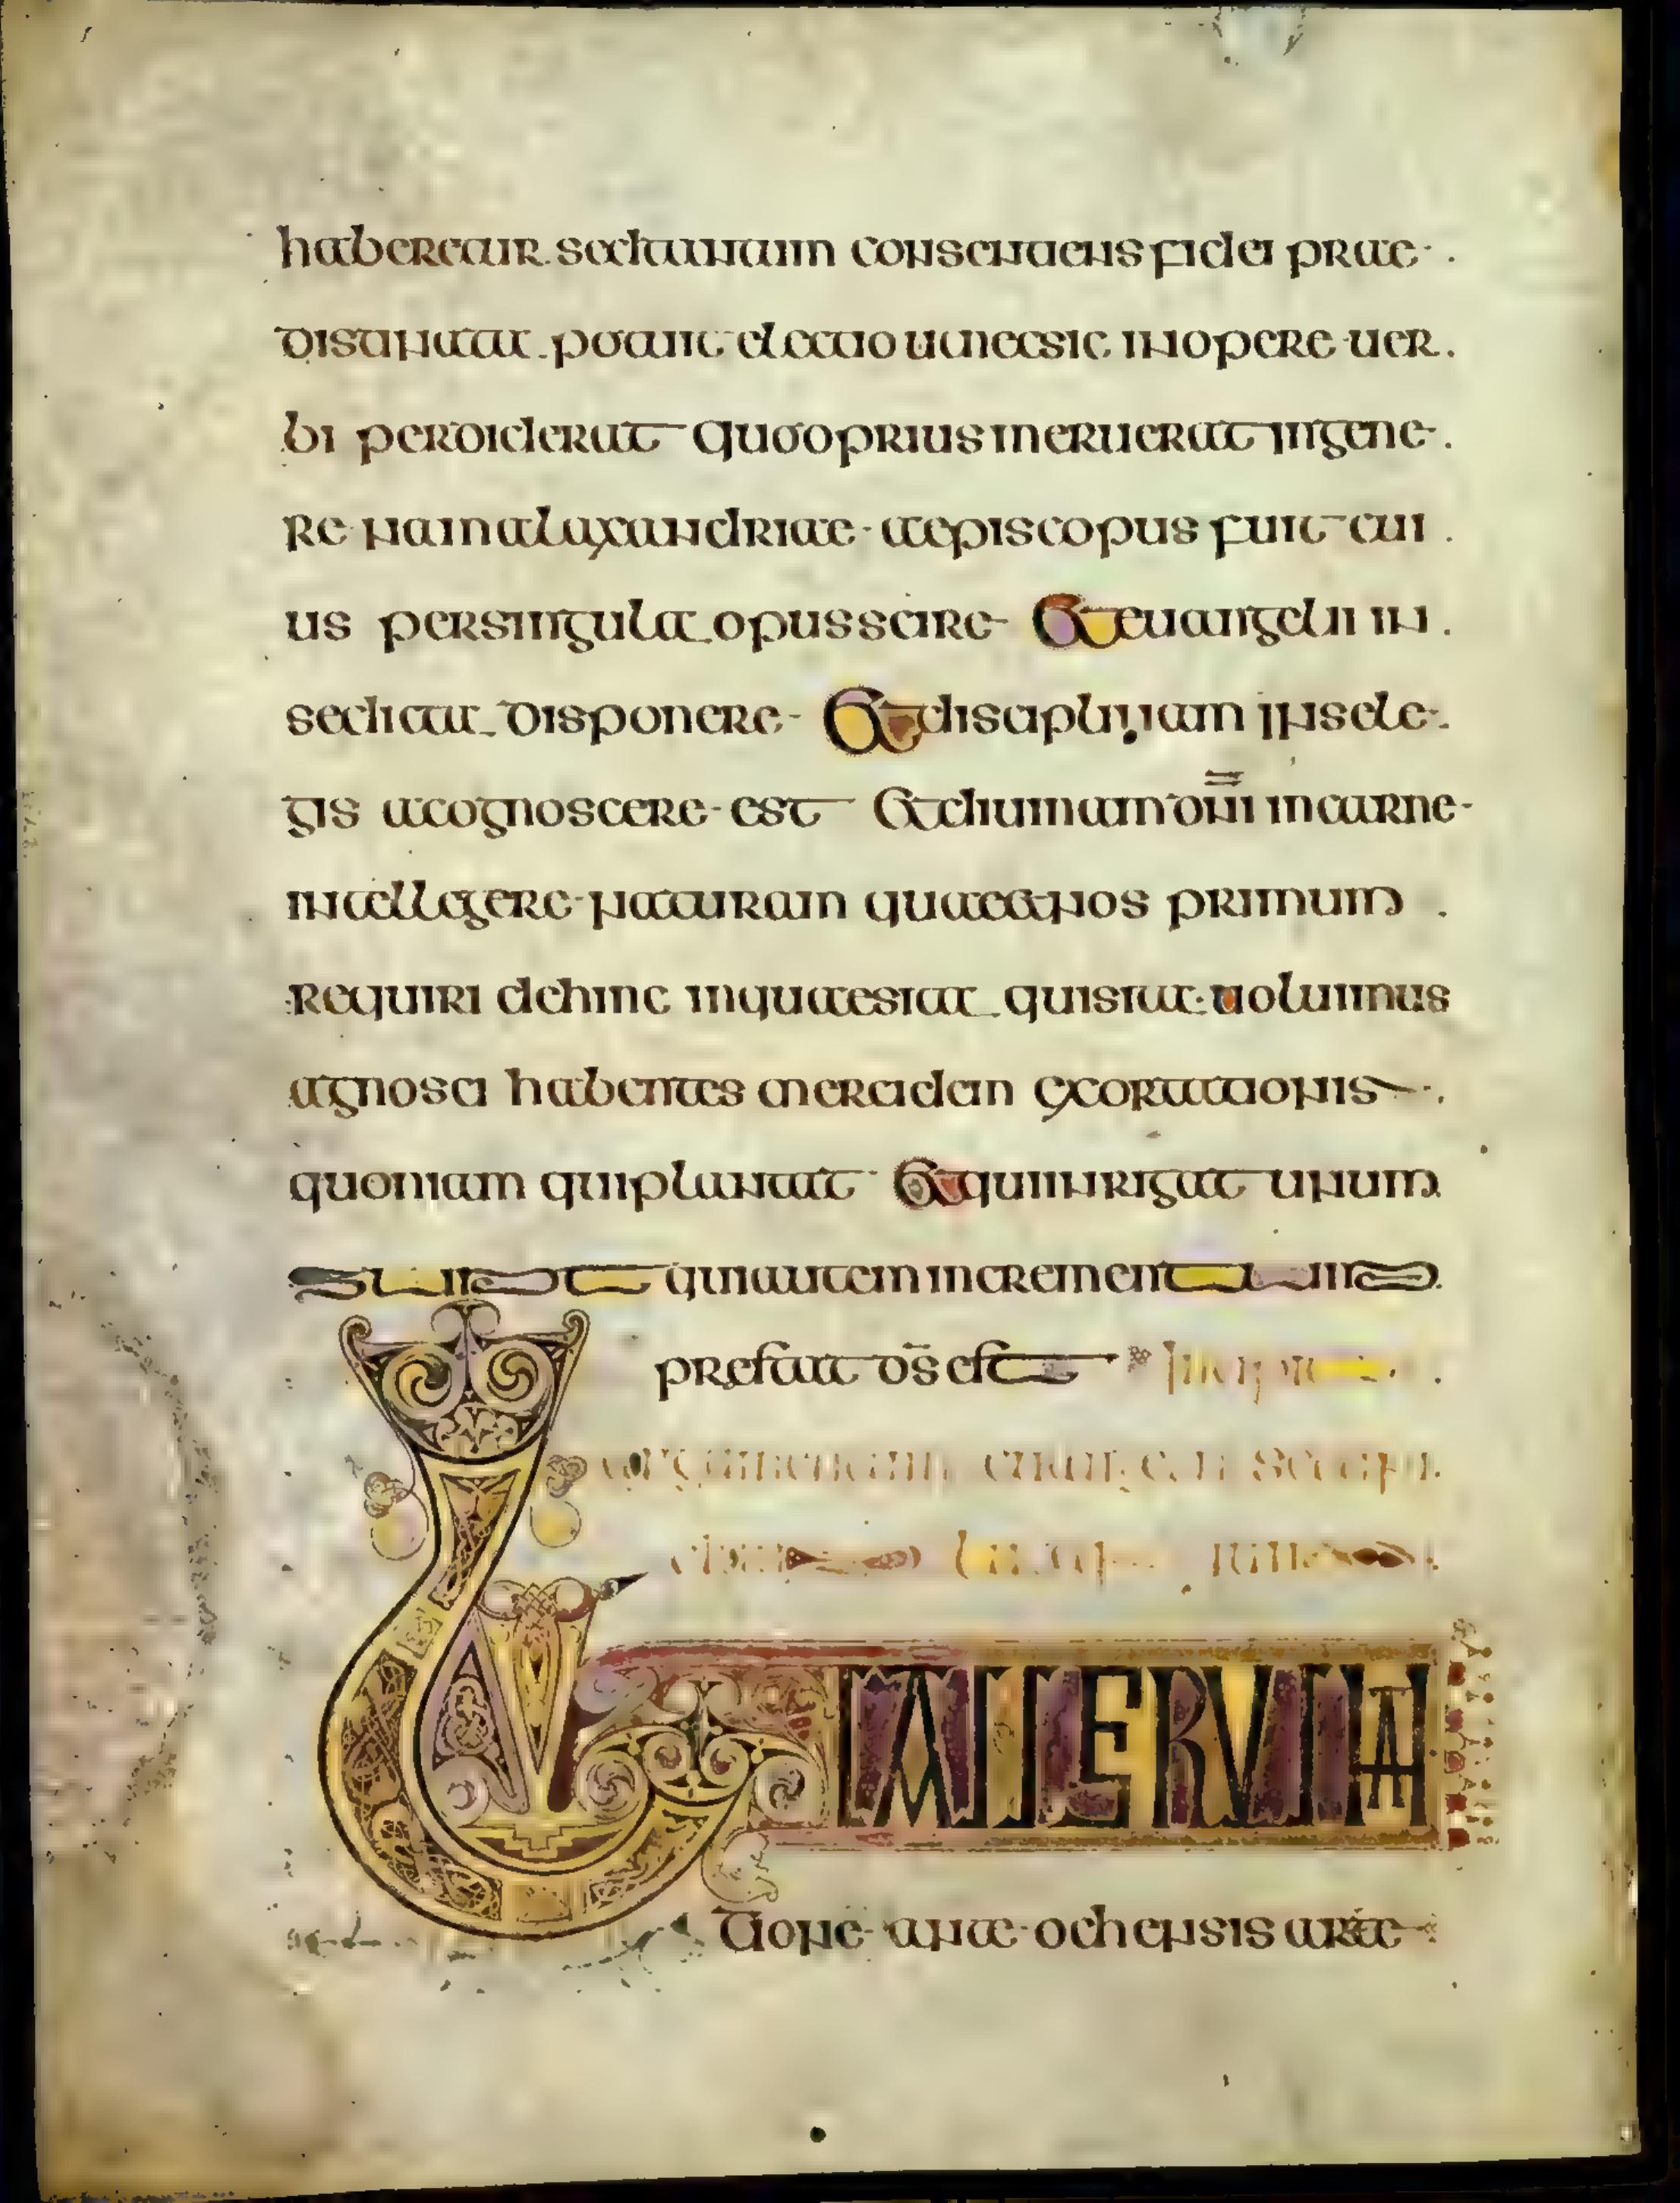 haberetur sed tantum consentiens fidei prae
distinata potuit electio uti nec sic in opere uer
bi perdiderat quod prius meruerat in gene
re nam alaxandriae aepiscopus fuit cui
us per singula opus scire Et euangelii in
se dicta disponere Et disciplinam in se le
gis acognoscere est Et diuinam dni in carne
intellegere naturam quae et nos primum
requiri dehinc inquaesita quisita uolumus
agnosci habentes mercidem exortationis
quoniam qui plantat Et qui inrigat unum
sunt qui autem incrementum
prestat ds est
tione ante ochensis arte